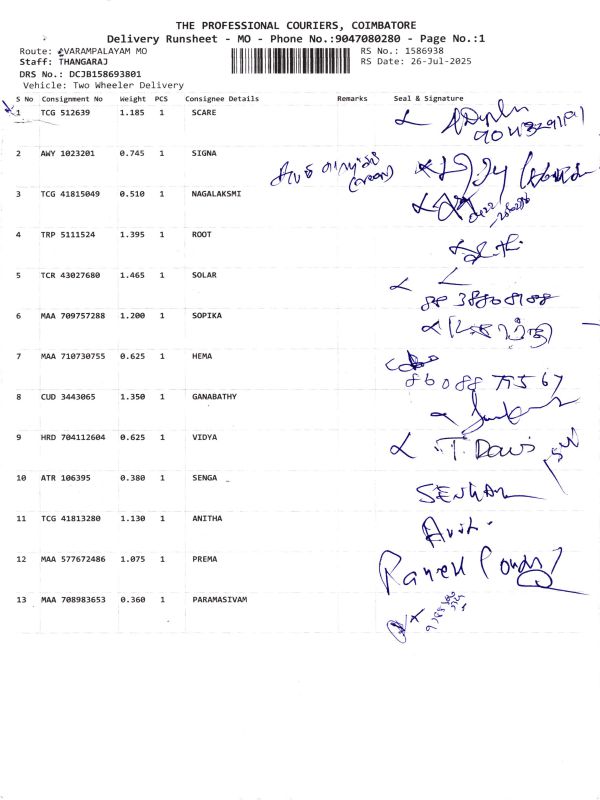 THE PROFESSIONAL COURIERS, COIMBATORE
Delivery Runsheet - MO - Phone No.:9047080280 - Page No.:1
Route: EVARAMPALAYAM MO
RS No.: 1586938
Staff: THANGARAJ
RS Date: 26-Jul-2025
DRS No.: DCJB158693801
Vehicle: Two Wheeler Delivery
S No Consignment No Weight PCS Consignee Details Remarks Seal & Signature
1 TCG 512639 1.185 1 SCARE
2 AWY 1023201 0.745 1 SIGNA
3 TCG 41815049 0.510 1 NAGALAKSMI
4 TRP 5111524 1.395 1 ROOT
5 TCR 43027680 1.465 1 SOLAR
6 MAA 709757288 1.200 1 SOPIKA
7 MAA 710730755 0.625 1 HEMA
86088 77567
8 CUD 3443065 1.350 1 GANABATHY
9 HRD 704112604 0.625 1 VIDYA T. Davis
10 ATR 106395 0.380 1 SENGA
11 TCG 41813280 1.130 1 ANITHA
12 MAA 577672486 1.075 1 PREMA
13 MAA 708983653 0.360 1 PARAMASIVAM